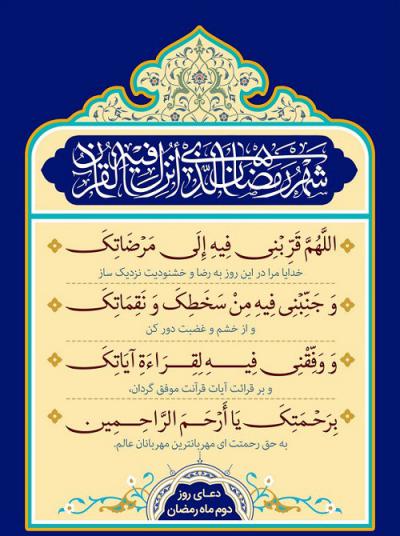 شهر رمضان الذی أنزل فیه القرآن
اللَّهُمَّ قَرِّبْنِی فِیهِ إِلَی مَرْضَاتِکَ
خدایا مرا در این روز به رضا و خشنودیت نزدیک ساز
وَ جَنِّبْنِی فِیهِ مِنْ سَخَطِکَ وَ نَقِمَاتِکَ
و از خشم و غضبت دور کن
وَ وَفِّقْنِی فِیهِ لِقِرَاءَةِ آیَاتِکَ
و بر قرائت آیات قرآنت موفق گردان،
بِرَحْمَتِکَ یَا أَرْحَمَ الرَّاحِمِینَ
به حق رحمتت ای مهربانترین مهربانان عالم.
دعای روز
دوم ماه رمضان